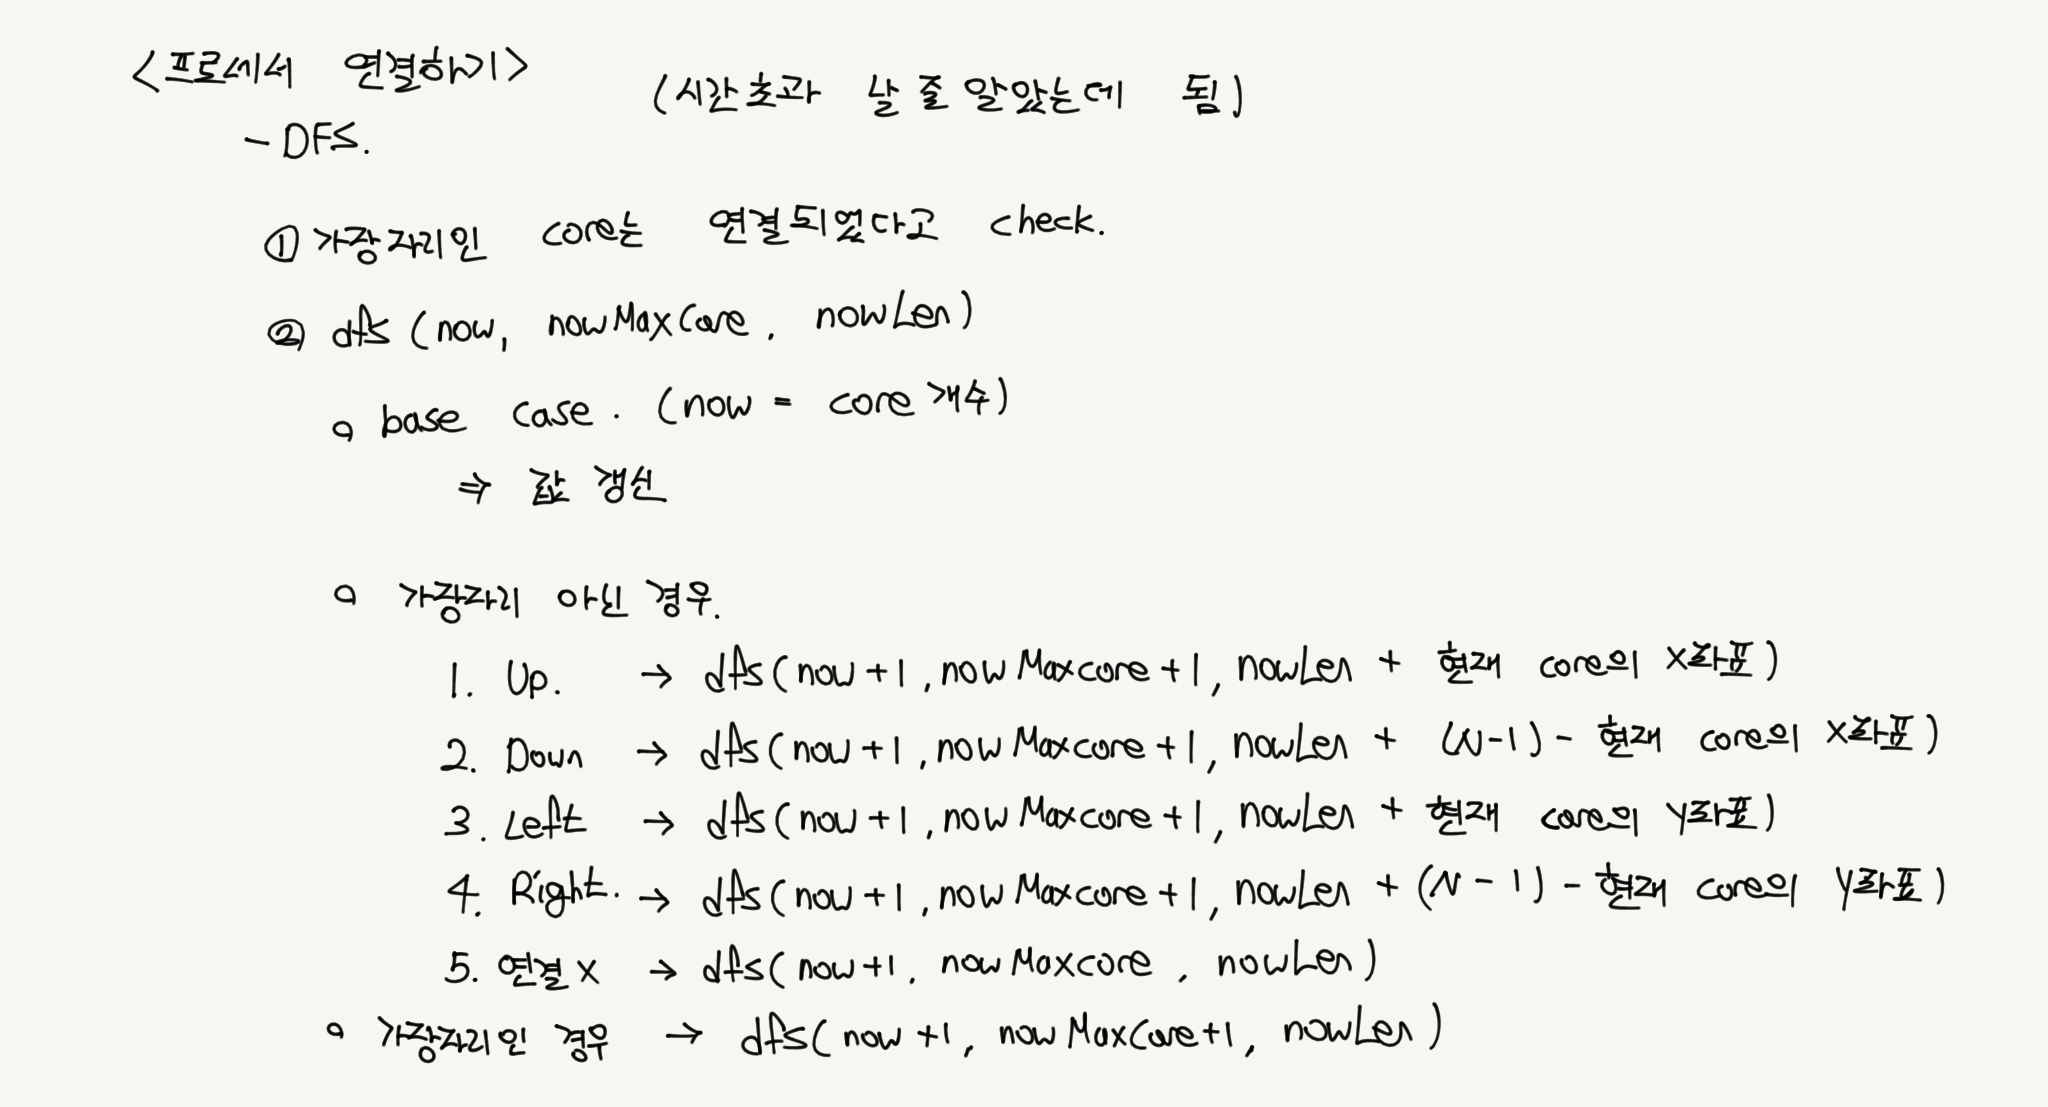 <프로세서 연결하기>
(시간초과 날 줄 알았는데 됨)
- DFS.
① 가장자리인 core는 연결되었다고 check.
② dfs (now, nowMaxCore, nowLen)
◦ base case. (now = core 개수)
⇒ 값 갱신
◦ 가장자리 아닌 경우.
1. Up. → dfs(now+1, nowMaxcore+1, nowLen + 현재 core의 X좌표)
2. Down → dfs(now+1, nowMaxcore+1, nowLen + (N-1) - 현재 core의 X좌표)
3. Left → dfs(now+1, nowMaxcore+1, nowLen + 현재 core의 Y좌표)
4. Right. → dfs(now+1, nowMaxcore+1, nowLen + (N-1) - 현재 core의 Y좌표)
5. 연결 X → dfs(now+1, nowMaxcore, nowLen)
◦ 가장자리인 경우 → dfs(now+1, nowMaxCore+1, nowLen)